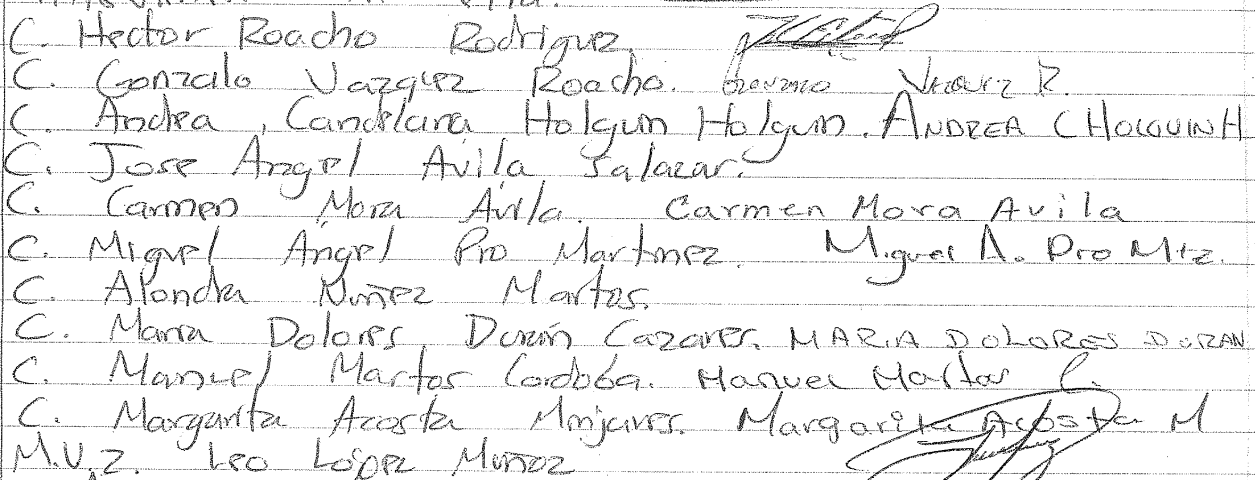 C. Hector Roacho Rodriguez.
C. Gonzalo Vazquez Roacho. Gonzalo Vazquez R.
C. Andrea Candelaria Holguin Holguin. ANDREA C HOLGUIN H
C. Jose Angel Avila Salazar.
C. Carmen Mora Avila. Carmen Mora Avila
C. Miguel Angel Pro Martinez. Miguel A. Pro Mtz.
C. Alondra Nuñez Martos.
C. Maria Dolores Durán Cazares. MARIA DOLORES DURAN
C. Manuel Martos Cordoba. Manuel Martos C.
C. Margarita Acosta Minjares. Margarita Acosta M
M.V.Z. Leo López Muñoz